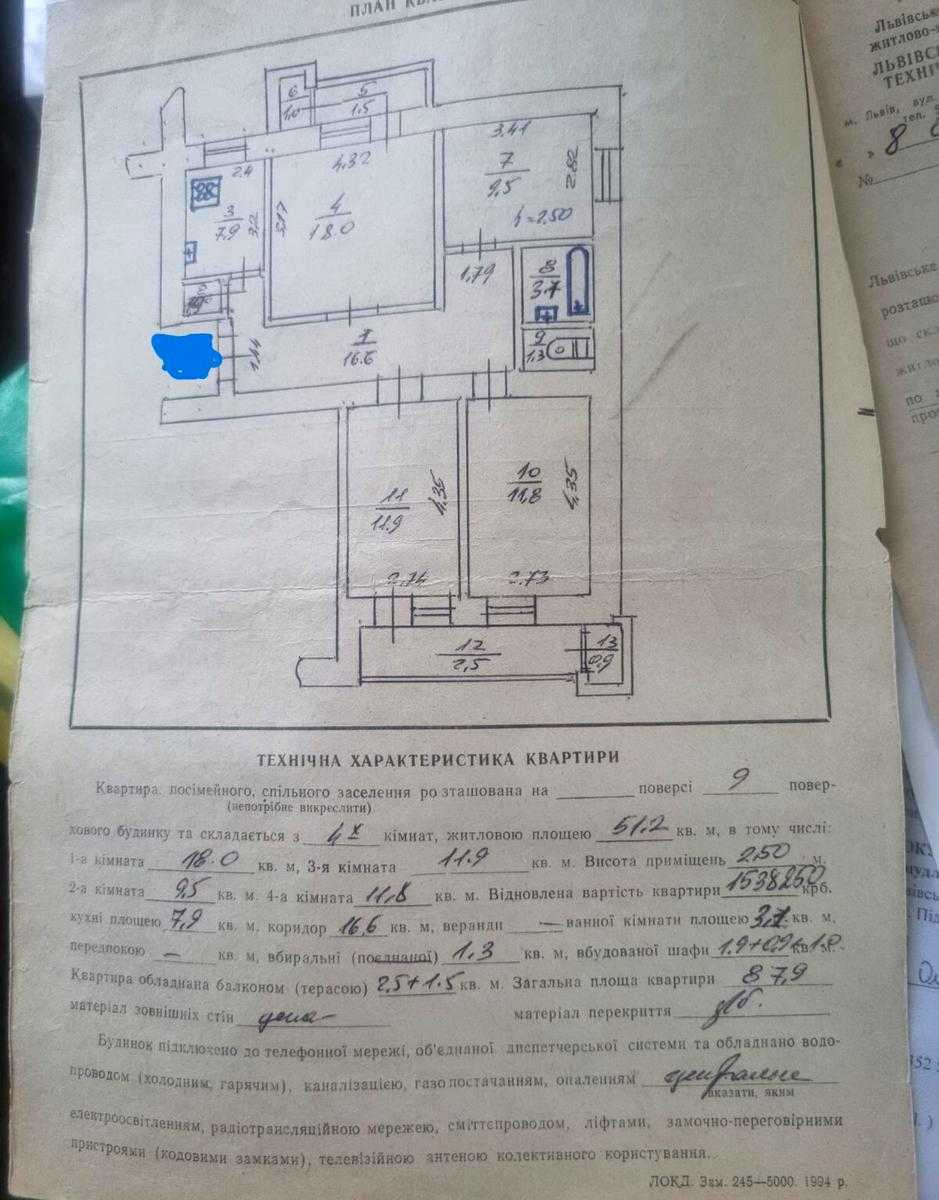 ПЛАН КВА
6
1,0
5
1.5
2.4
4.32
3.41
7
9,5
2.82
h=2.50
3
7.9
3.2
4
18.0
1,79
8
3.7
9
1,3
1
16.6
11
11.9
4,35
10
11,8
4,35
2,74
2,73
12
2,5
13
0.9
ТЕХНІЧНА ХАРАКТЕРИСТИКА КВАРТИРИ
Квартира: посімейного, спільного заселення розташована на поверсі 9 повер-
(непотрібне викреслити)
хового будинку та складається з 4х кімнат, житловою площею 51.2 кв. м, в тому числі:
1-а кімната 18.0 кв. м, 3-я кімната 11.9 кв. м. Висота приміщень 2,50 м.
2-а кімната 9,5 кв. м. 4-а кімната 11,8 кв. м. Відновлена вартість квартири 1538250 крб.
кухні площею 7,9 кв. м, коридор 16,6 кв. м, веранди — ванної кімнати площею 3,7 кв. м,
передпокою — кв. м, вбиральні (поєднаної) 1.3 кв. м, вбудованої шафи 1.9+0,9+1.0
Квартира обладнана балконом (терасою) 2,5+1.5 кв. м. Загальна площа квартири 87,9
матеріал зовнішніх стін матеріал перекриття
Будинок підключено до телефонної мережі, об'єднаної диспетчерської системи та обладнано водо-
проводом (холодним, гарячим), каналізацією, газопостачанням, опаленням
вказати, яким
електроосвітленням, радіотрансляційною мережею, сміттєпроводом, ліфтами, замочно-переговірними
пристроями (кодовими замками), телевізійною антеною колективного користування.
ЛОКД. Зам. 245—5000. 1994 р.
Львівськ
житлово-к
ЛЬВІВСЬ
ТЕХНІЧ
м. Львів, вул.
тел.
« » 8
№
Львівське
розташо
що скл
житло
по